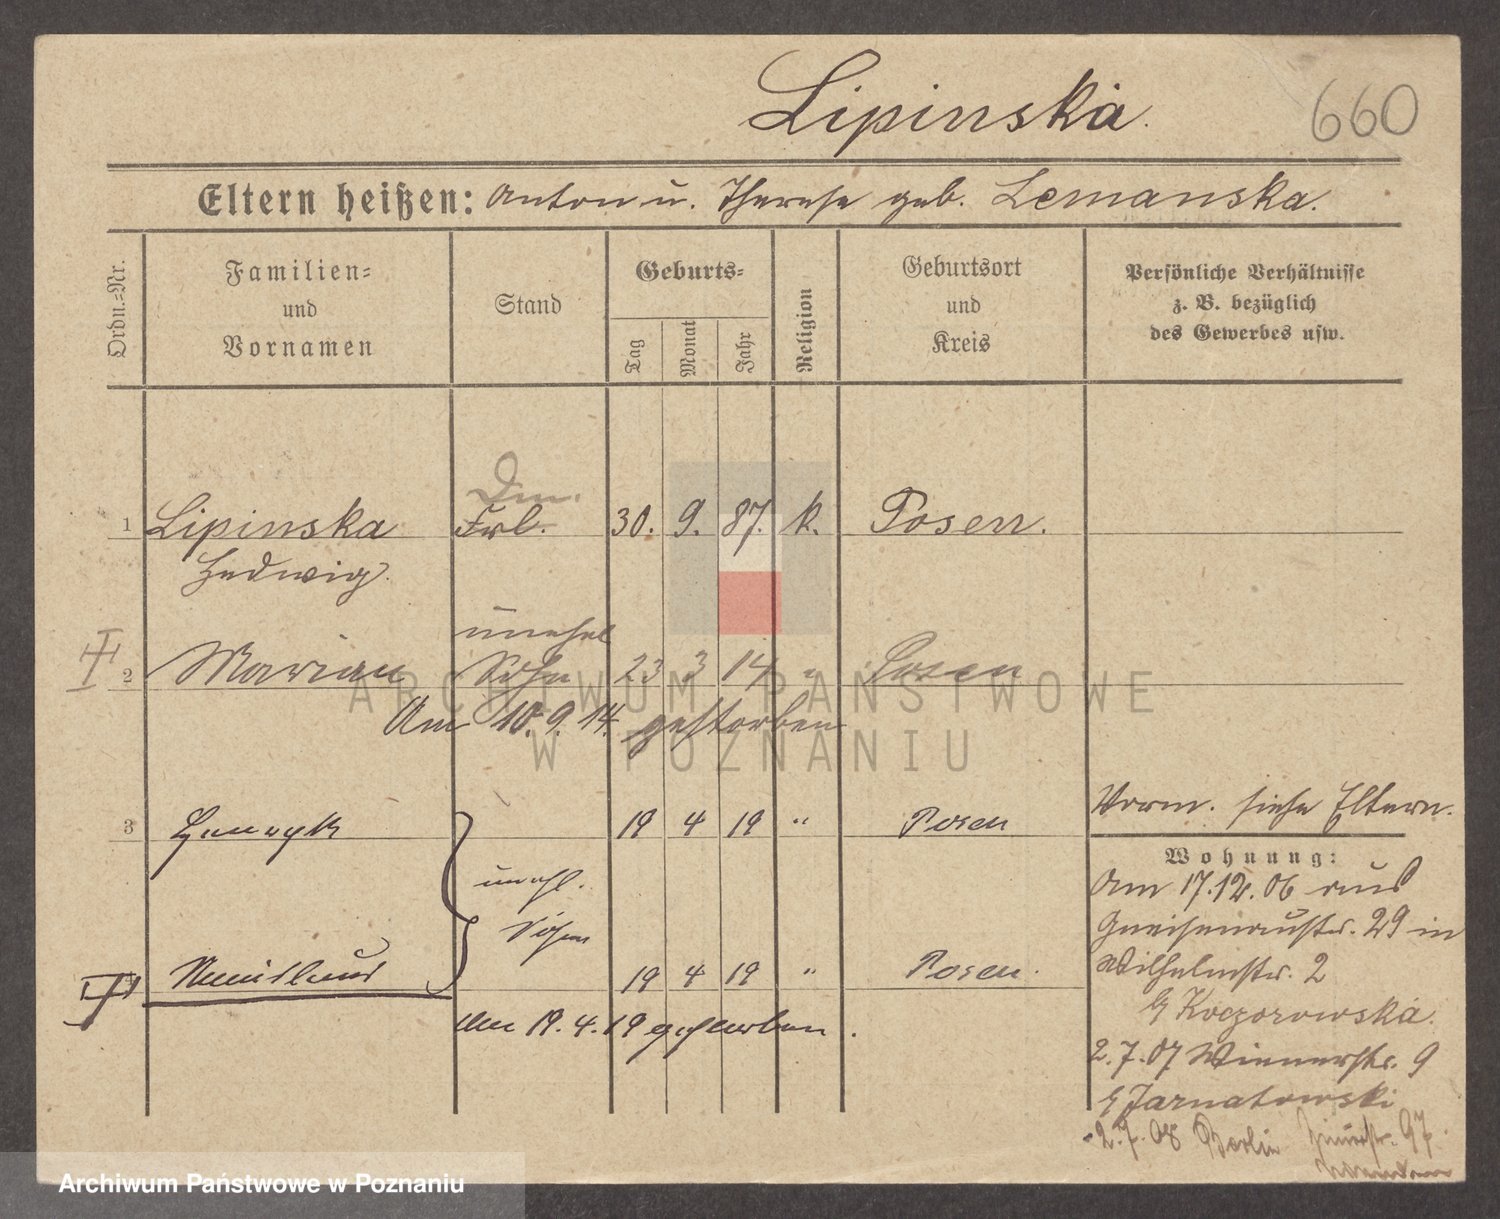 Lipinska.
660
Eltern heißen: Anton u. Therese geb. Lemanska.
Ordn.=Nr.
Familien=
und
Vornamen
Stand
Geburts=
Tag
Monat
Jahr
Religion
Geburtsort
und
Kreis
Persönliche Verhältnisse
z. B. bezüglich
des Gewerbes usw.
Dm.
1 Lipinska Frl. 30. 9. 87. k. Posen.
Hedwig.
unehel
2 Marian Sohn 23 3 14 " Posen
Am 10.9.14. gestorben
3 Henryk 19 4 19 " Posen
unehl.
Söhne
19 4 19 " Posen.
Am 19.4.19 gestorben.
Vorm. siehe Eltern.
Wohnung:
Am 17.12.06 aus
Gneisenaustr. 29 in
Wilhelmstr. 2
Koczorowska.
2.7.07 Wienerstr. 9
Jarnatowski
2.7.08 Berlin 97
ARCHIWUM PAŃSTWOWE
W POZNANIU
Archiwum Państwowe w Poznaniu